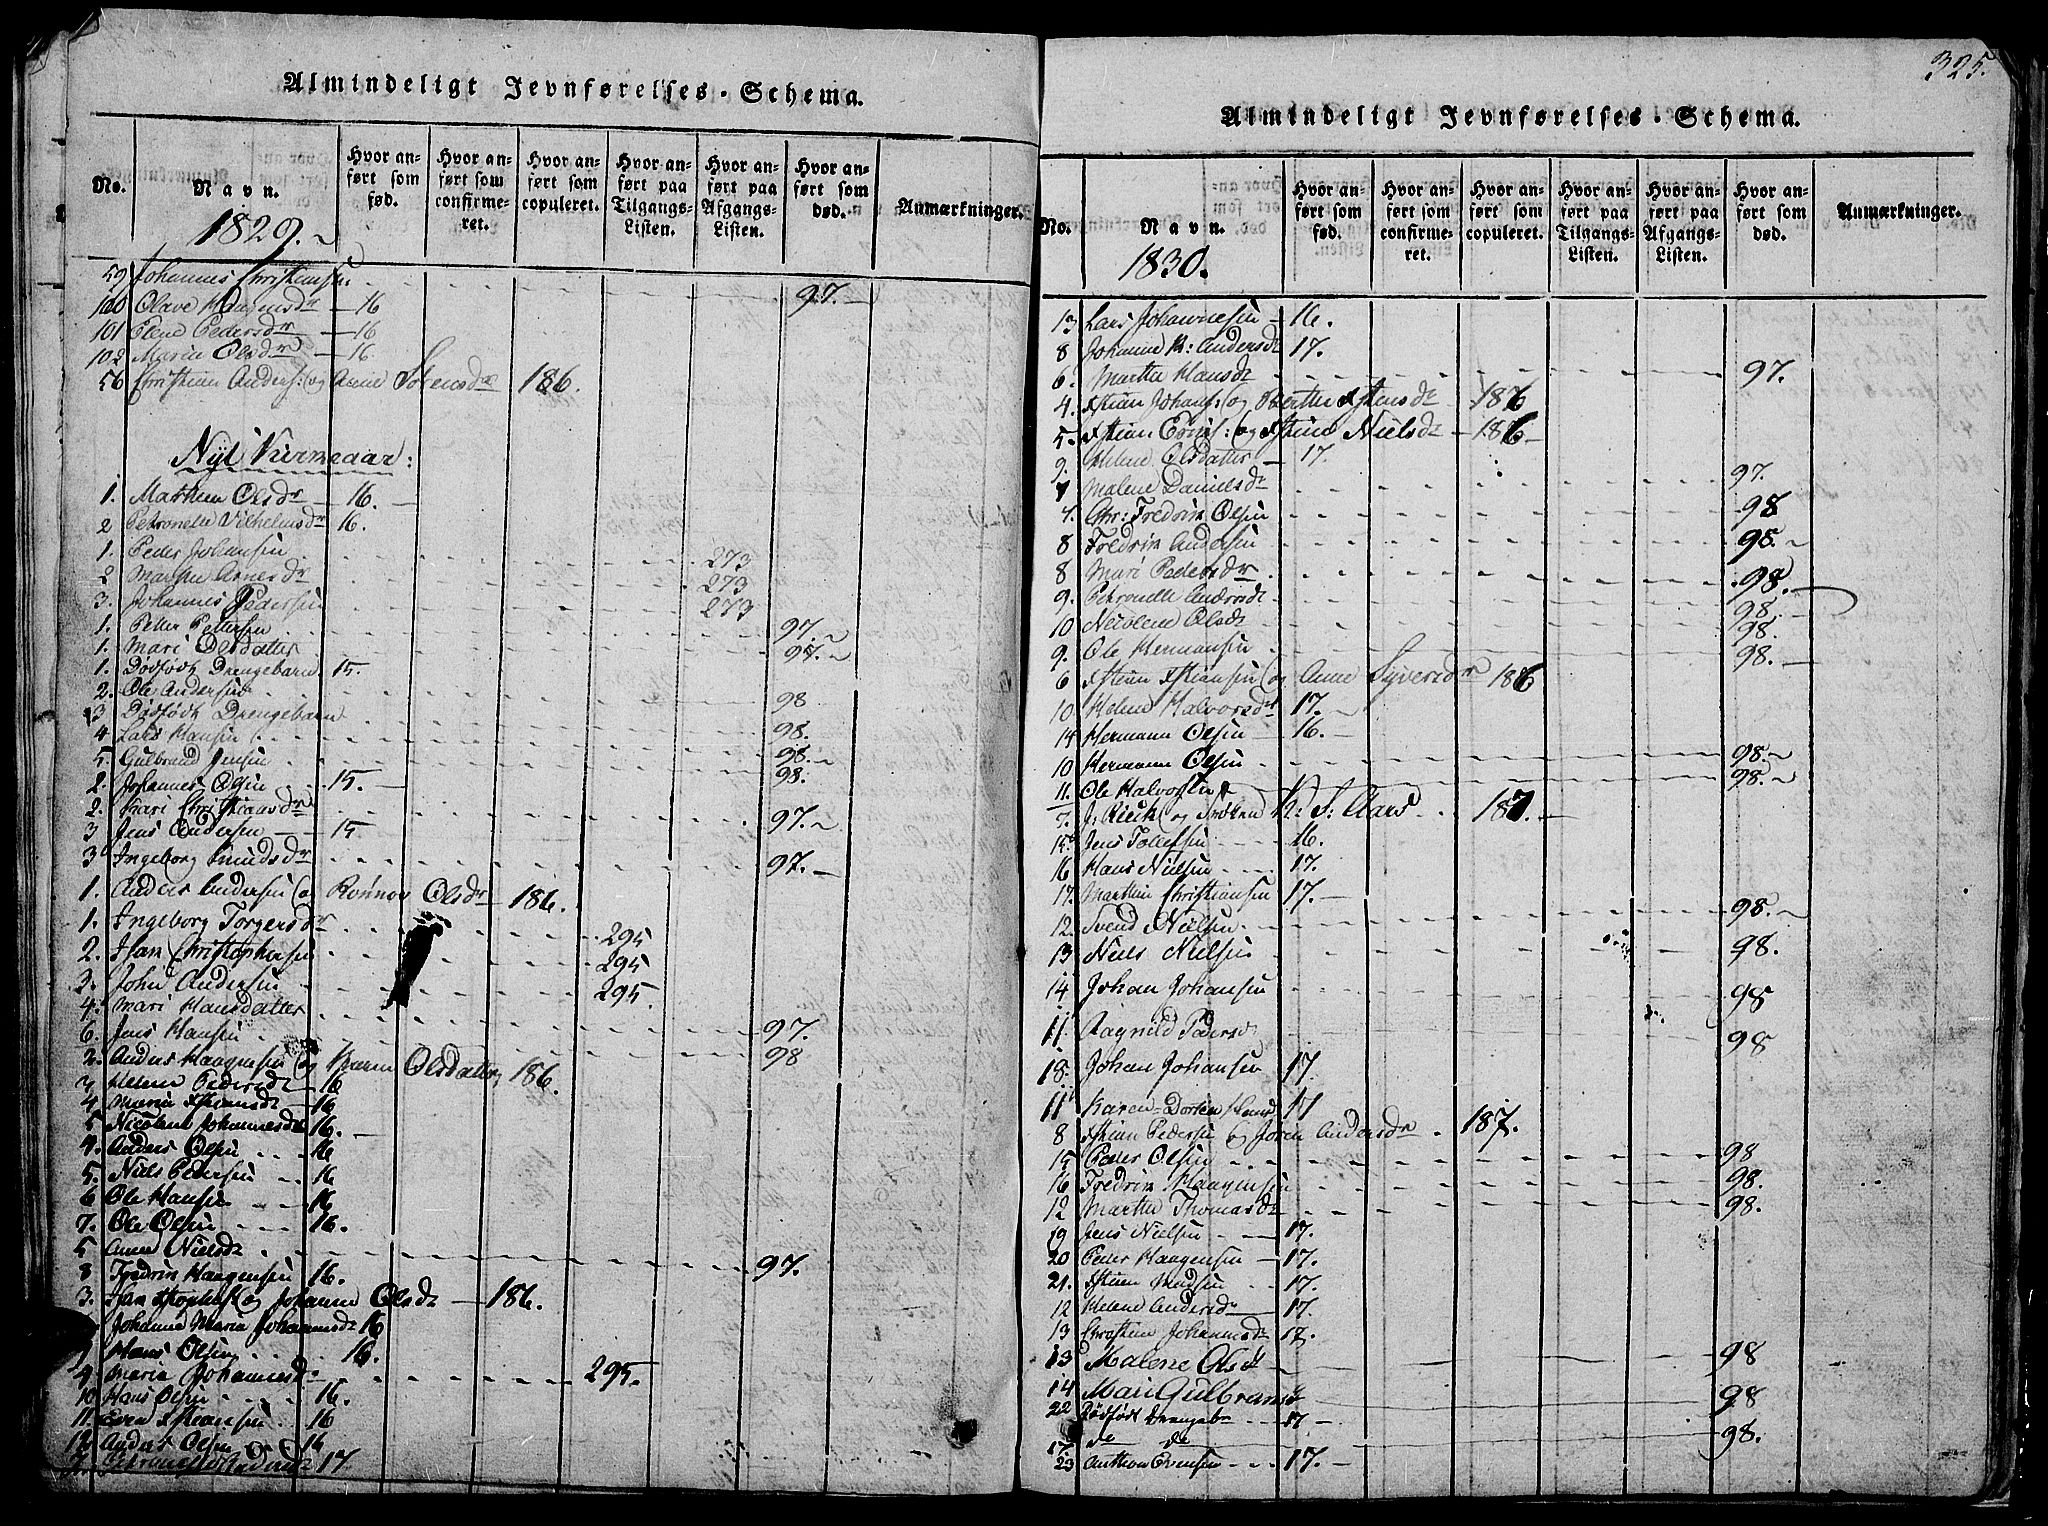 Almindeligt Jevnførelses-Schema.
No. Navn. Hvor anført som fød. Hvor anført som confirmeret. Hvor anført som copuleret. Hvor anført paa Tilgangs-Listen. Hvor anført paa Afgangs-Listen. Hvor anført som død. Anmærkninger.
1829.
59 Johannes Christiansen 97.
100 Olave Haagensdr 16
101 Elene Pedersdr 16
102 Maria Olsdr 16
56 Christian Anders: og Anne Sørensdr 186.
Nyt Kirmeaar:
1. Mathea Olsdr 16.
2 Petronelle Vilhelmsdr 16.
1. Peder Johansen 273
2 Marthe Arnesdr 273
3. Johannes Pedersen 273
1. Petter Pettersen 97.
1. Mari Olsdatter 97.
1. Dødfødt Drengebarn 15.
2. Ole Andersen 98
3 Dødfødt Drengebarn
4 Lars Hansen 98.
5. Gulbrand Jensen 98.
2. Johannes Olsen 15. 98.
2. Kari Christiansdr 97.
3 Jens Andersen 15
3 Ingeborg Knudsdr 97.
1. Anders Andersen og Rønnov Olsdr 186.
1. Ingeborg Torgersdr 295
2. Han Christophersen 295
3. John Andersen 295.
4. Mari Hansdatter
6. Jens Hansen 97.
2. Anders Haagensen og Karen Olsdatter 186. 98
3 Helene Pedersdt 16
4 Maria Xstiansdt 16
5 Nicoline Johannesdt 16.
4. Anders Olsen 16
5. Niels Pedersen 16
6 Ole Hansen 16
7. Ole Olsen 16.
5 Anne Nielsdt 97.
8 Fredrik Haagensen 16.
3. Han Xstophers og Johanne Olsdt 186.
Johanne Maria Johannesdt 16
9 Hans Olsen 16.
4 Maria Johannesdr 295.
10 Hans Olsen 16.
11 Even Xstiansen 16
12 Anders Olsen 16
7 17
325.
Almindeligt Jevnførelses-Schema.
No. Navn. Hvor anført som fød. Hvor anført som confirmeret. Hvor anført som copuleret. Hvor anført paa Tilgangs-Listen. Hvor anført paa Afgangs-Listen. Hvor anført som død. Anmærkninger.
1830.
13 Lars Johannesen 16.
8 Johanne K: Andersdt 17.
6. Marthe Hansdt 97.
4. Xstian Johans: og Berthe Xstensdt 186
5. Xstian Erics: og Xstine Nielsdr 186
9. Helene Olsdatter 17.
7 Malene Danielsdr 97.
7. Chr: Fredrik Olsen 98
8 Fredrik Andersen 98.
8 Mari Pedersdr 98.
9. Petronelle Andersdt 98.
10 Nicolene Olsdt 98.
9. Ole Hermansen 98.
6 Xstian Xstiansen og Anne Syversdr 186
10 Helene Halvorsdr 17.
14 Hermann Olsen 16.
10 Hermann Olsen 98.
11. Ole Halvorsen 98.
7. J: Rieck og Frøken K: S: Aars 187.
15 Jens Tollefsen 16.
16 Hans Nielsen 17.
17. Marthin Christiansen 17.
12. Svend Nielsen 98.
13 Niels Nielsen 98.
14 Johan Johansen 98
11 Ragnild Pedersdr 98
18. Johan Johansen 17.
11 Karen Dorthea Hansdt 17
8 Xstian Pedersen og Joren Andersdr 187.
15 Peder Olsen 98
16 Fredrik Haagensen 98.
12 Marthe Thomasdr 98.
19 Jens Nielsen 17.
20 Peder Haagensen 17.
21. Xstian Madsen 17.
12 Helene Andersdr 17.
13 Christine Johannesdr 17.
13 Malene Olsdt 98
14 Mari Gulbransdt 98
22 Dødfødt Drengebn 17
17. do do 98.
23 Anthon Evensen 17.